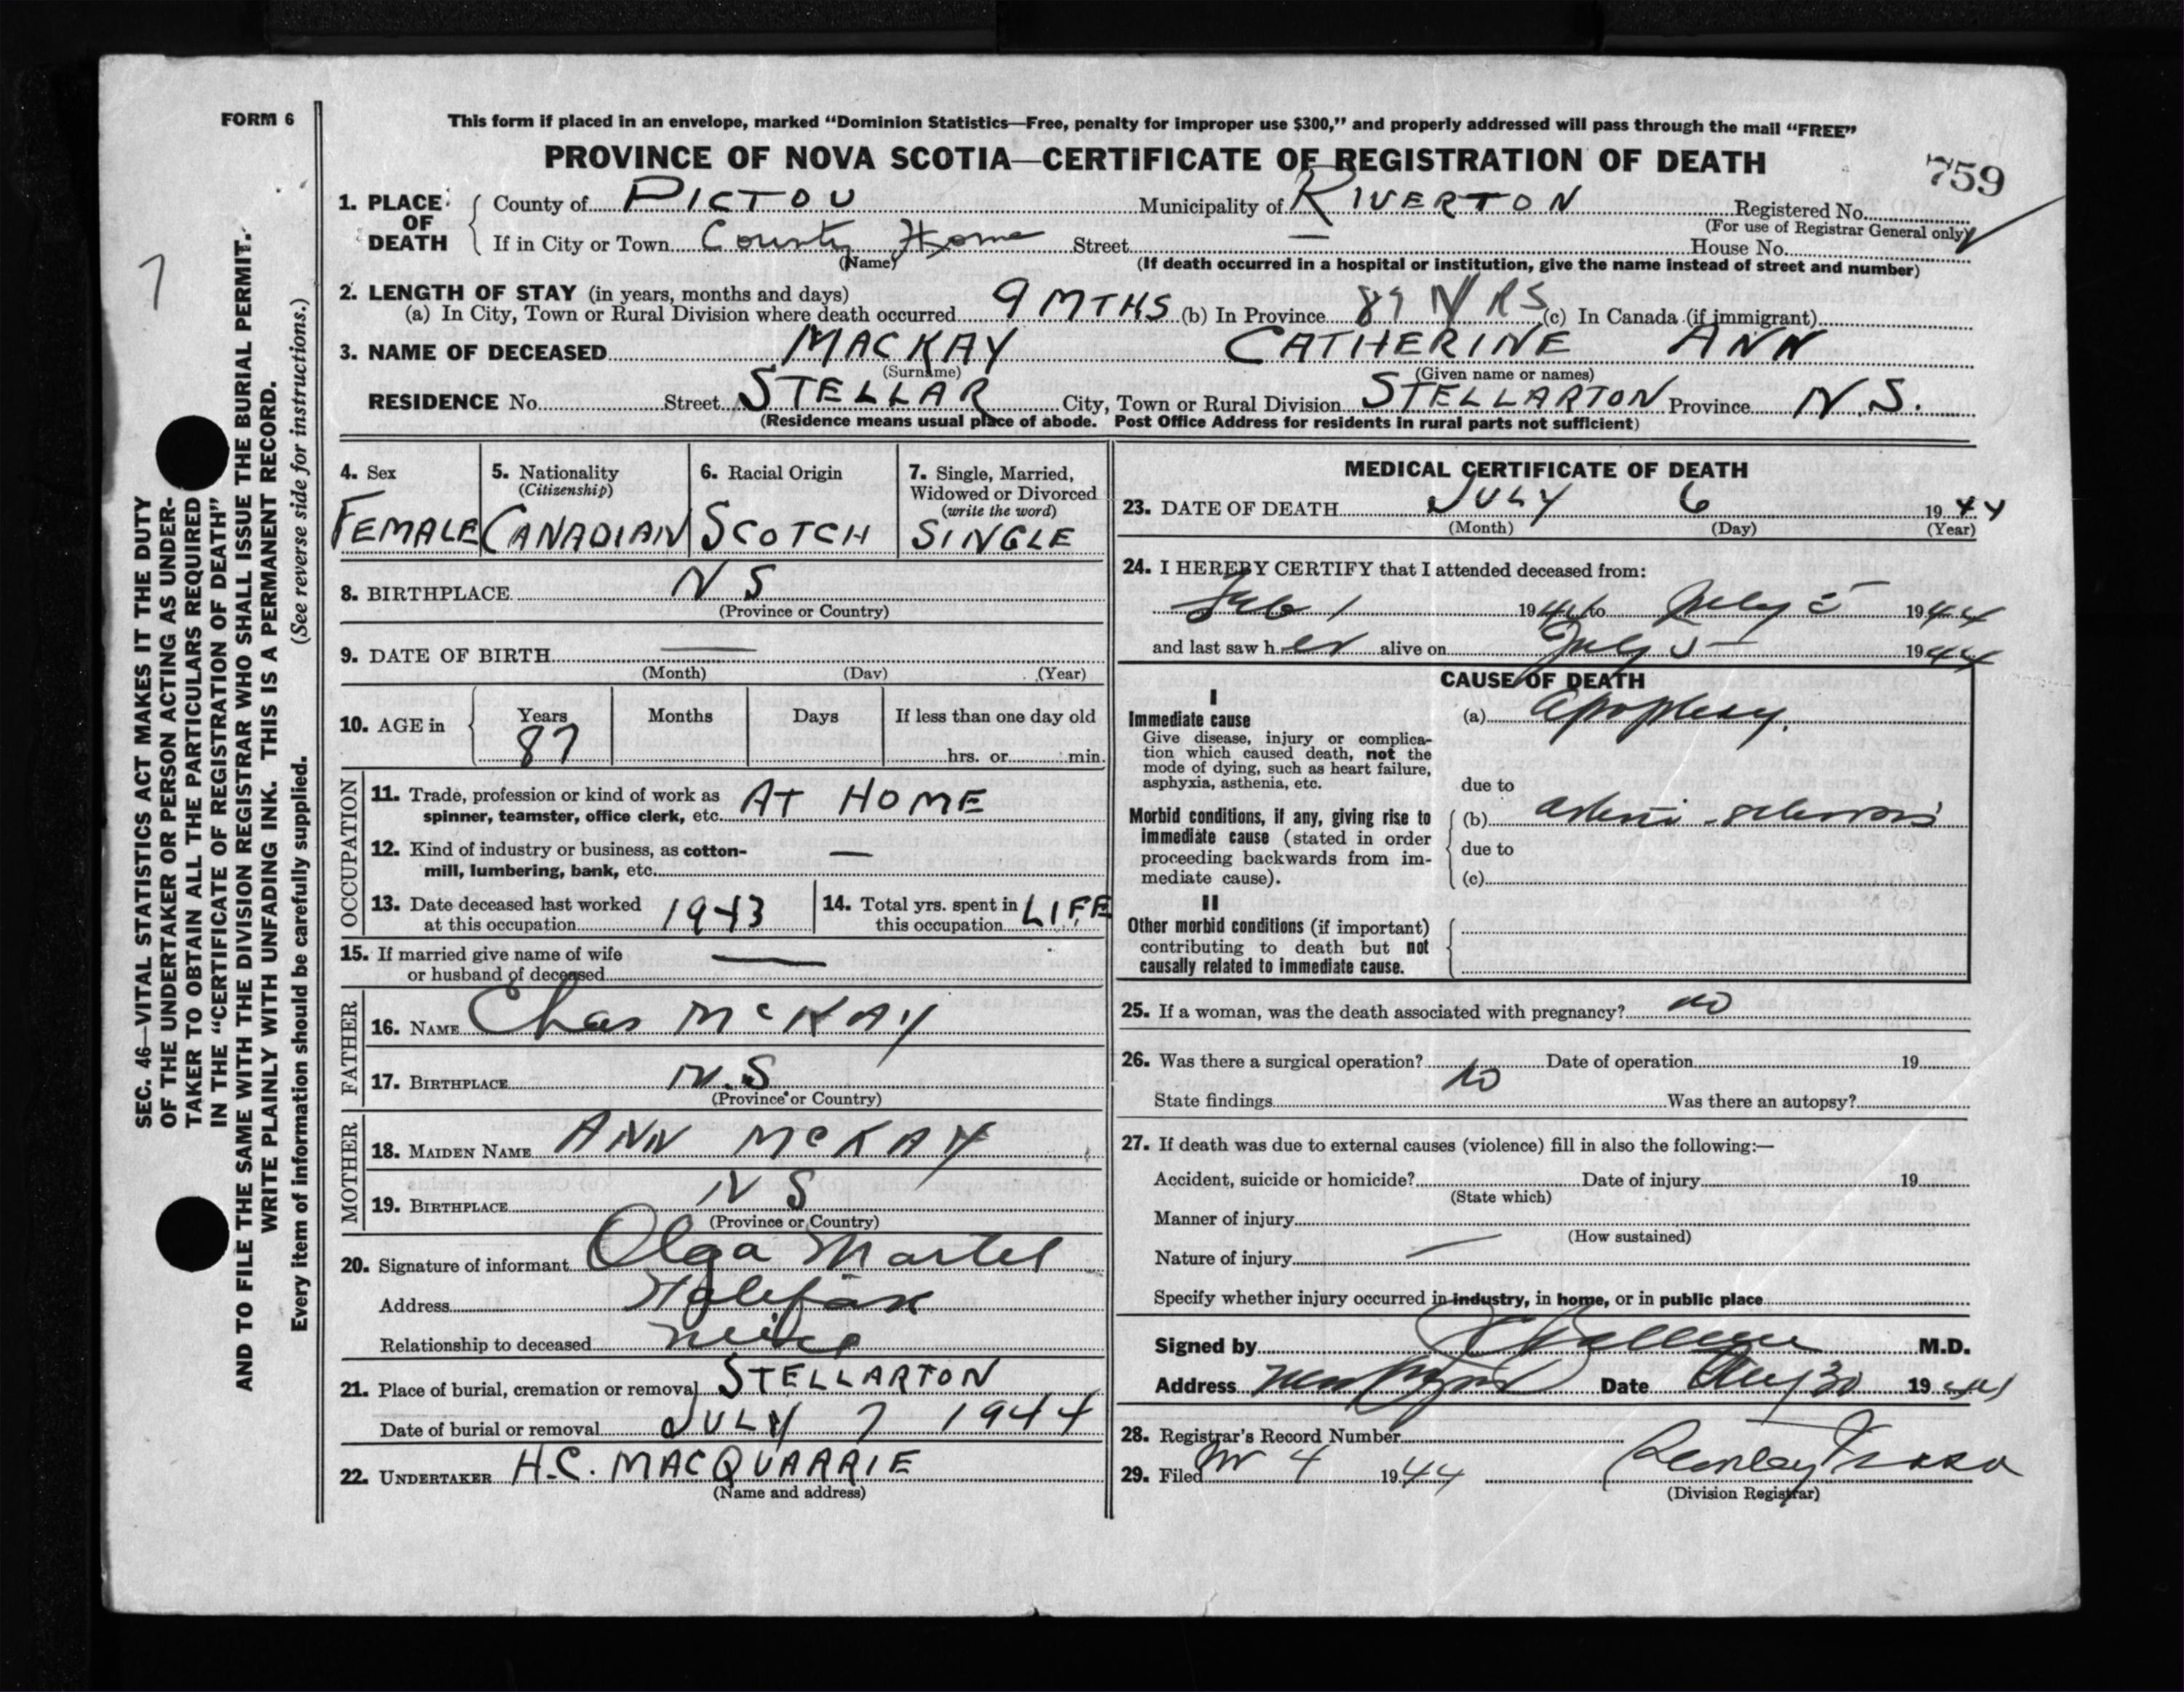 FORM 6
This form if placed in an envelope, marked "Dominion Statistics—Free, penalty for improper use $300," and properly addressed will pass through the mail "FREE"
PROVINCE OF NOVA SCOTIA—CERTIFICATE OF REGISTRATION OF DEATH
759
7
SEC. 46—VITAL STATISTICS ACT MAKES IT THE DUTY
OF THE UNDERTAKER OR PERSON ACTING AS UNDER-
TAKER TO OBTAIN ALL THE PARTICULARS REQUIRED
IN THE "CERTIFICATE OF REGISTRATION OF DEATH"
AND TO FILE THE SAME WITH THE DIVISION REGISTRAR WHO SHALL ISSUE THE BURIAL PERMIT.
WRITE PLAINLY WITH UNFADING INK. THIS IS A PERMANENT RECORD.
Every item of information should be carefully supplied. (See reverse side for instructions.)
1. PLACE OF DEATH
County of PICTOU Municipality of RIVERTON Registered No.
(For use of Registrar General only)
If in City or Town County Home Street — House No.
(Name) (If death occurred in a hospital or institution, give the name instead of street and number)
2. LENGTH OF STAY (in years, months and days)
(a) In City, Town or Rural Division where death occurred 9 MTHS (b) In Province 87 YRS (c) In Canada (if immigrant)
3. NAME OF DECEASED MACKAY CATHERINE ANN
(Surname) (Given name or names)
RESIDENCE No. Street STELLAR City, Town or Rural Division STELLARTON Province N.S.
(Residence means usual place of abode. Post Office Address for residents in rural parts not sufficient)
4. Sex
FEMALE
5. Nationality
(Citizenship)
CANADIAN
6. Racial Origin
SCOTCH
7. Single, Married,
Widowed or Divorced
(write the word)
SINGLE
8. BIRTHPLACE N S
(Province or Country)
9. DATE OF BIRTH —
(Month) (Day) (Year)
10. AGE in Years Months Days If less than one day old
87 hrs. or min.
OCCUPATION
11. Trade, profession or kind of work as
spinner, teamster, office clerk, etc. AT HOME
12. Kind of industry or business, as cotton-
mill, lumbering, bank, etc. —
13. Date deceased last worked
at this occupation 1943
14. Total yrs. spent in
this occupation LIFE
15. If married give name of wife
or husband of deceased —
FATHER
16. NAME Chas McKAY
17. BIRTHPLACE N.S.
(Province or Country)
MOTHER
18. MAIDEN NAME ANN McKAY
19. BIRTHPLACE N S
(Province or Country)
20. Signature of informant Olga Martel
Address Halifax
Relationship to deceased niece
21. Place of burial, cremation or removal STELLARTON
Date of burial or removal JULY 7 1944
22. UNDERTAKER H.C. MACQUARRIE
(Name and address)
MEDICAL CERTIFICATE OF DEATH
23. DATE OF DEATH JULY 6 1944
(Month) (Day) (Year)
24. I HEREBY CERTIFY that I attended deceased from:
Feb 1 1944 to July 5 1944
and last saw her alive on July 5 1944
CAUSE OF DEATH
I
Immediate cause
Give disease, injury or complica-
tion which caused death, not the
mode of dying, such as heart failure,
asphyxia, asthenia, etc.
(a) apoplexy.
due to
Morbid conditions, if any, giving rise to
immediate cause (stated in order
proceeding backwards from im-
mediate cause).
(b) arterio-sclerosis
due to
(c)
II
Other morbid conditions (if important)
contributing to death but not
causally related to immediate cause.
25. If a woman, was the death associated with pregnancy? no
26. Was there a surgical operation? no Date of operation 19
State findings Was there an autopsy?
27. If death was due to external causes (violence) fill in also the following:—
Accident, suicide or homicide? Date of injury 19
(State which)
Manner of injury
(How sustained)
Nature of injury —
Specify whether injury occurred in industry, in home, or in public place
Signed by M.D.
Address Date 30 1944
28. Registrar's Record Number
29. Filed 4 1944
(Division Registrar)